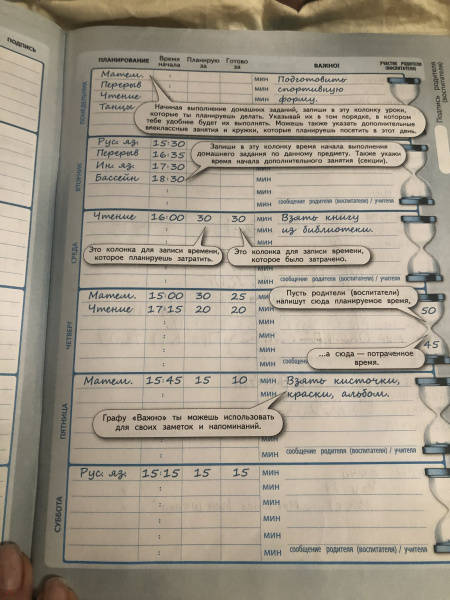 ПОДПИСЬ
ПЛАНИРОВАНИЕ Время начала Планирую за Готово за ВАЖНО! УЧАСТИЕ РОДИТЕЛЯ (ВОСПИТАТЕЛЯ)
Подпись родителя (воспитателя)
ПОНЕДЕЛЬНИК
Матем. : мин Подготовить
Перерыв : мин спортивную
Чтение мин форму.
Танцы
Начиная выполнение домашних заданий, запиши в эту колонку уроки,
которые ты планируешь делать. Указывай их в том порядке, в котором
тебе удобнее будет их выполнять. Можешь также указать дополнительные
внеклассные занятия и кружки, которые планируешь посетить в этот день.
ВТОРНИК
Рус. яз. 15:30
Перерыв 16:35
Ин. яз. 17:30
Бассейн 18:30 мин
Запиши в эту колонку время начала выполнения
домашнего задания по данному предмету. Также укажи
время начала дополнительного занятия (секции).
: мин сообщение родителя (воспитателя) / учителя
СРЕДА
Чтение 16:00 30 30 мин Взять книгу
: мин из библиотеки.
мин
Это колонка для записи времени,
которое планируешь затратить.
Это колонка для записи времени,
которое было затрачено.
: мин сообщение родителя (воспитателя) / учителя
ЧЕТВЕРГ
Матем. 15:00 30 25 мин
Чтение 17:15 20 20 мин
: мин
: мин
: мин
Пусть родители (воспитатели)
напишут сюда планируемое время,
50
45
...а сюда — потраченное
время.
ПЯТНИЦА
Матем. 15:45 15 10 мин Взять кисточки,
: мин краски, альбом.
Графу «Важно» ты можешь использовать
для своих заметок и напоминаний.
: мин
: мин сообщение родителя (воспитателя) / учителя
СУББОТА
Рус. яз. 15:15 15 15 мин
: мин
: мин
: мин
: мин
: мин сообщение родителя (воспитателя) / учителя